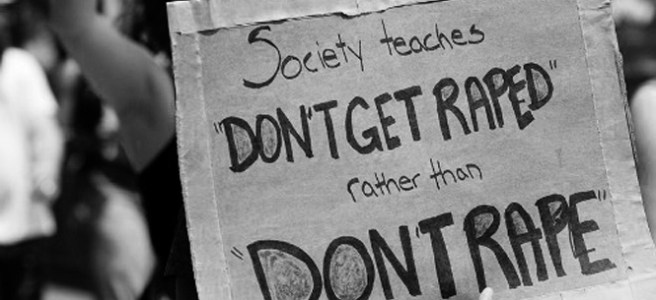 Society teaches
"DON'T GET RAPED"
rather than
"DON'T RAPE"